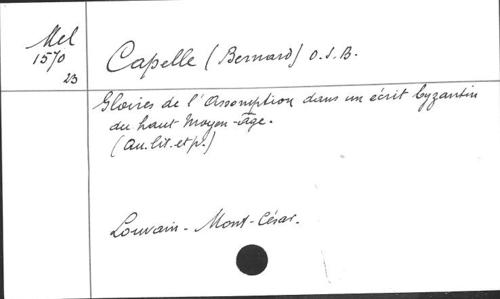 Mel
1570
23
Capelle (Bernard) O.S.B.
Gloires de l'Assomption dans un écrit byzantin
du haut Moyen-Âge.
(Qu.lit.et p.)
Louvain - Mont-César.